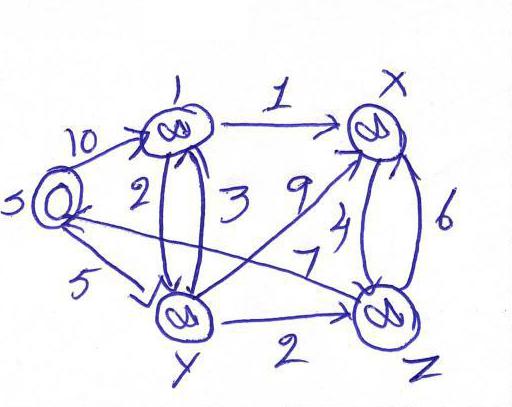 1
X
1
10
∞
∞
S
0
2
3
9
4
6
5
7
∞
∞
2
Y
Z